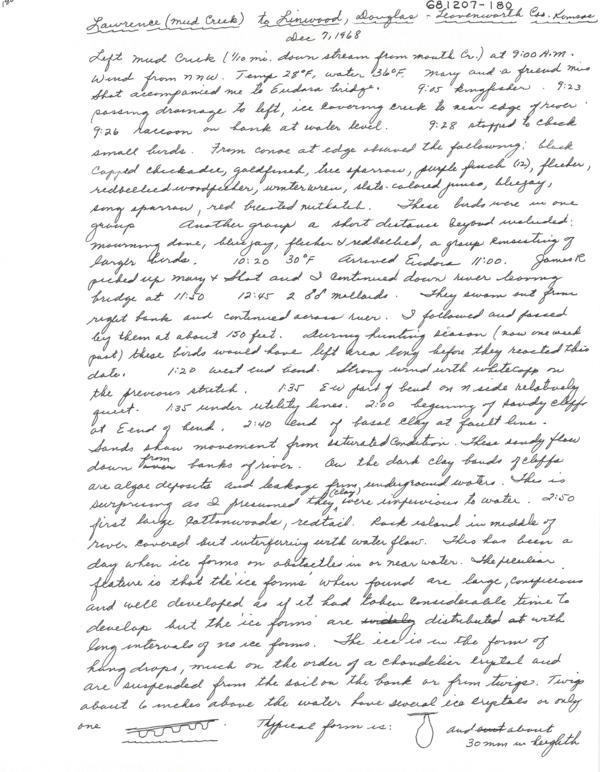 G81207-180
Lawrence (Mud Creek) to Linwood, Douglas - Leavenworth Cos. Kansas
Dec 7, 1968
Left Mud Creek (1/10 mi. down stream from mouth Cr.) at 9:00 A.M.
Wind from NNW. Temp 28°F, water 36°F. Mary and a friend Miss
Shot accompanied me to Eudora bridge. 9:05 kingfisher. 9:23
passing drainage to left, ice covering creek to near edge of river.
9:26 raccoon on bank at water level. 9:28 stopped to check
small birds. From canoe at edge observed the following: black
capped chickadee, goldfinch, tree sparrow, purple finch (12), flicker,
redbellied woodpecker, winter wren, slate-colored junco, bluejay,
song sparrow, red breasted nuthatch. These birds were in one
group Another group a short distance beyond included:
mourning dove, bluejay, flicker & redbellied, a group consisting of
larger birds. 10:20 30°F Arrived Eudora 11:00. James R
picked up Mary & Shot and I continued down river leaving
bridge at 11:50 12:45 2 ♂♂ mallards. They swam out from
right bank and continued across river. I followed and passed
by them at about 150 feet. During hunting season (now one week
past) these birds would have left area long before they reacted this
date. 1:20 west end bend. Strong wind with whitecaps on
the previous stretch. 1:35 E-W part of bend on N side relatively
quiet. 1:35 under utility lines. 2:00 begining of sandy cliffs
at E end of bend. 2:40 end of basal clay at fault line.
Sands show movement from saturated condition. These sandy flow
down from banks of river. On the dark clay bands of cliffs
are algae deposits and leakage from underground waters. This is
surprising as I presumed they (clay) were impervious to water. 2:50
first large cottonwoods, redtail. Rock island in middle of
river covered but interfering with water flow. This has been a
day when ice forms on obstacles in or near water. The peculiar
feature is that the 'ice forms' when found are large, conspicious
and well developed as if it had taken considerable time to
develop but the 'ice forms' are widely distributed at with
long intervals of no ice forms. The ice is in the form of
hang drops, much on the order of a chandelier crystal and
are suspended from the soil on the bank or from twigs. Twigs
about 6 inches above the water have several ice crystals or only
one . Typical form is: and about
30 mm in heighth